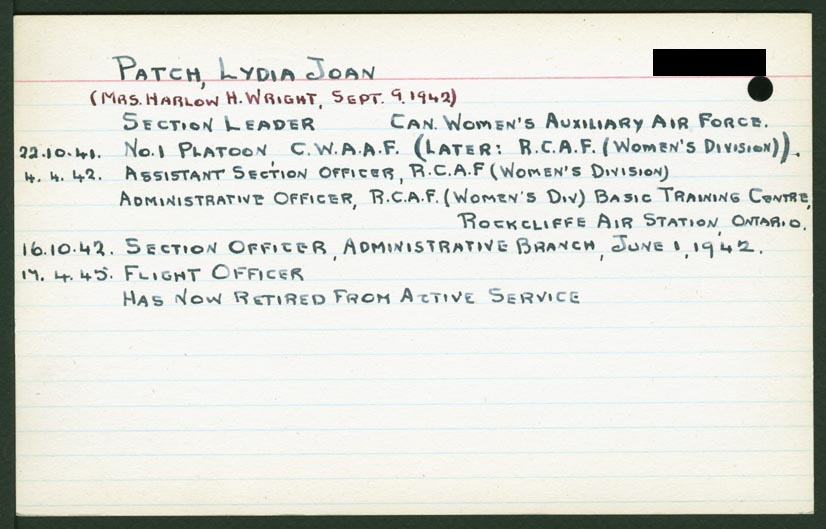 PATCH, LYDIA JOAN
(MRS. HARLOW H. WRIGHT, SEPT. 9. 1942)
SECTION LEADER CAN. WOMEN'S AUXILIARY AIR FORCE.
22.10.41. NO.1 PLATOON, C.W.A.A.F. (LATER: R.C.A.F. (WOMEN'S DIVISION)).
4. 4. 42. ASSISTANT SECTION OFFICER, R.C.A.F (WOMEN'S DIVISION)
ADMINISTRATIVE OFFICER, R.C.A.F. (WOMEN'S DIV) BASIC TRAINING CENTRE,
ROCKCLIFFE AIR STATION, ONTARIO.
16.10.42. SECTION OFFICER, ADMINISTRATIVE BRANCH, JUNE 1, 1942.
4. 45. FLIGHT OFFICER
HAS NOW RETIRED FROM ACTIVE SERVICE